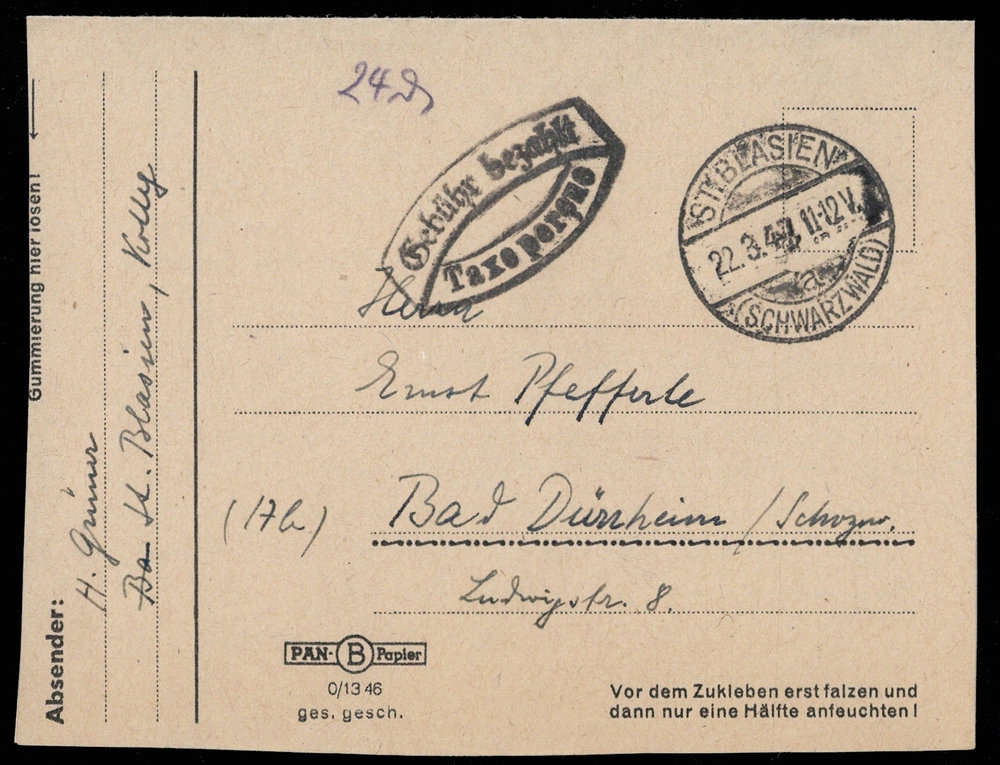 24 D
Gebühr bezahlt
Taxe perçue
ST. BLASIEN
22.3.47. 11-12 V.
a
(SCHWARZWALD)
Herrn
Ernst Pfefferle
(17b) Bad Dürrheim / Schwzw.
Ludwigstr. 8.
PAN- B Papier
0/13 46
ges. gesch.
Vor dem Zukleben erst falzen und
dann nur eine Hälfte anfeuchten!
Gummierung hier lösen!
Absender:
H. Grüner
Ba St. Blasien, Kolleg